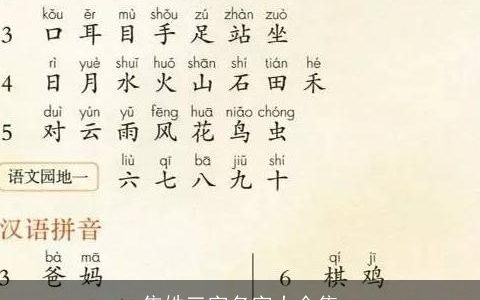 kǒu ěr mù shǒu zú zhàn zuò
3 口 耳 目 手 足 站 坐
rì yuè shuǐ huǒ shān shí tián hé
4 日 月 水 火 山 石 田 禾
duì yún yǔ fēng huā niǎo chóng
5 对 云 雨 风 花 鸟 虫
liù qī bā jiǔ shí
语文园地一 六 七 八 九 十
汉语拼音
bà mā qí jī
3 爸 妈 6 棋 鸡